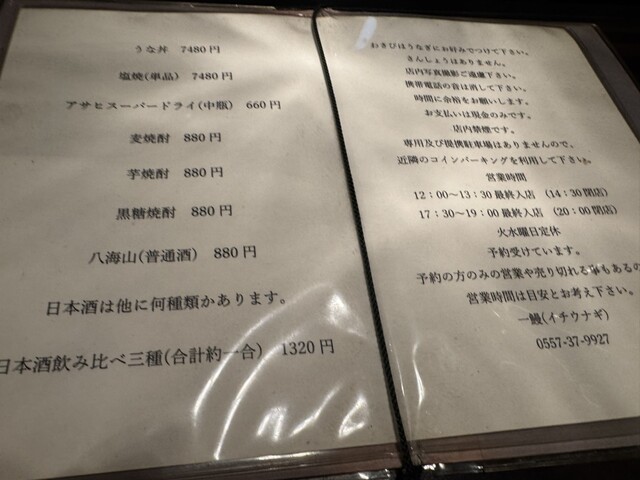 うな丼 7480円
塩焼(単品) 7480円
アサヒスーパードライ(中瓶) 660円
麦焼酎 880円
芋焼酎 880円
黒糖焼酎 880円
八海山(普通酒) 880円
日本酒は他に何種類かあります。
日本酒飲み比べ三種(合計約一合) 1320円
わさびはうなぎにお好みでつけて下さい。
さんしょうはありません。
店内写真撮影ご遠慮下さい。
携帯電話の音は消して下さい。
時間に余裕をお願いします。
お支払いは現金のみです。
店内禁煙です。
専用及び提携駐車場はありませんので、
近隣のコインパーキングを利用して下さい。
営業時間
12:00〜13:30最終入店 (14:30閉店)
17:30〜19:00最終入店 (20:00閉店)
火水曜日定休
予約受けています。
予約の方のみの営業や売り切れる事もあるの
営業時間は目安とお考え下さい。
一鰻(イチウナギ)
0557-37-9927